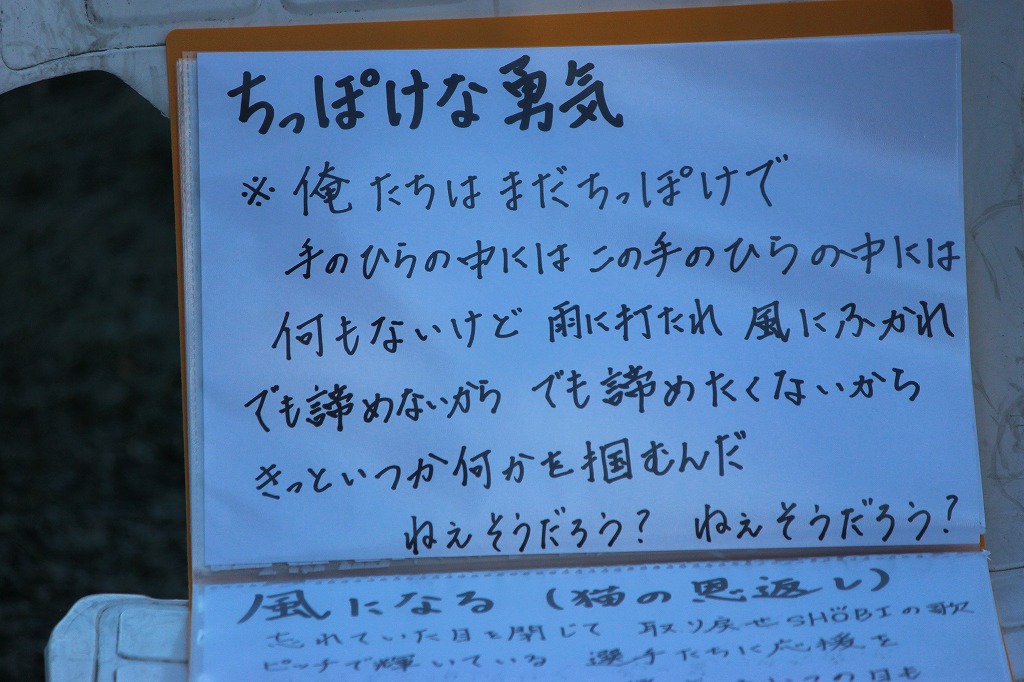 ちっぽけな勇気
※俺たちはまだちっぽけで
手のひらの中には この手のひらの中には
何もないけど 雨に打たれ 風にふかれ
でも諦めないから でも諦めたくないから
きっといつか何かを掴むんだ
ねぇそうだろう? ねぇそうだろう?
風になる (猫の恩返し)
忘れていた目を閉じて 取り戻せSHOBIの歌
ピッチで輝いている 選手たちに応援を
の日も